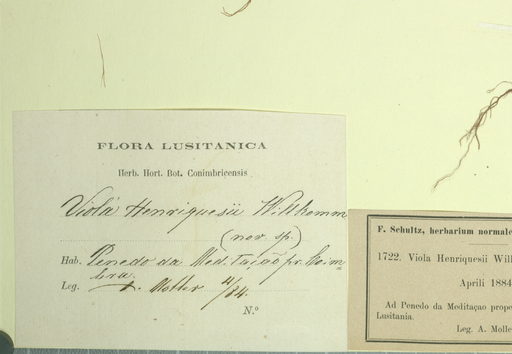 FLORA LUSITANICA
Herb. Hort. Bot. Conimbricensis
Viola Henriquesii Willkomm
(nov. sp.)
Hab. Penedo da Meditação pr. Coim-
bra.
Leg. A. Moller 4/84.
N.º
F. Schultz, herbarium normale
1722. Viola Henriquesii Will
Aprili 1884
Ad Penedo da Meditaçao prope
Lusitania.
Leg. A. Molle